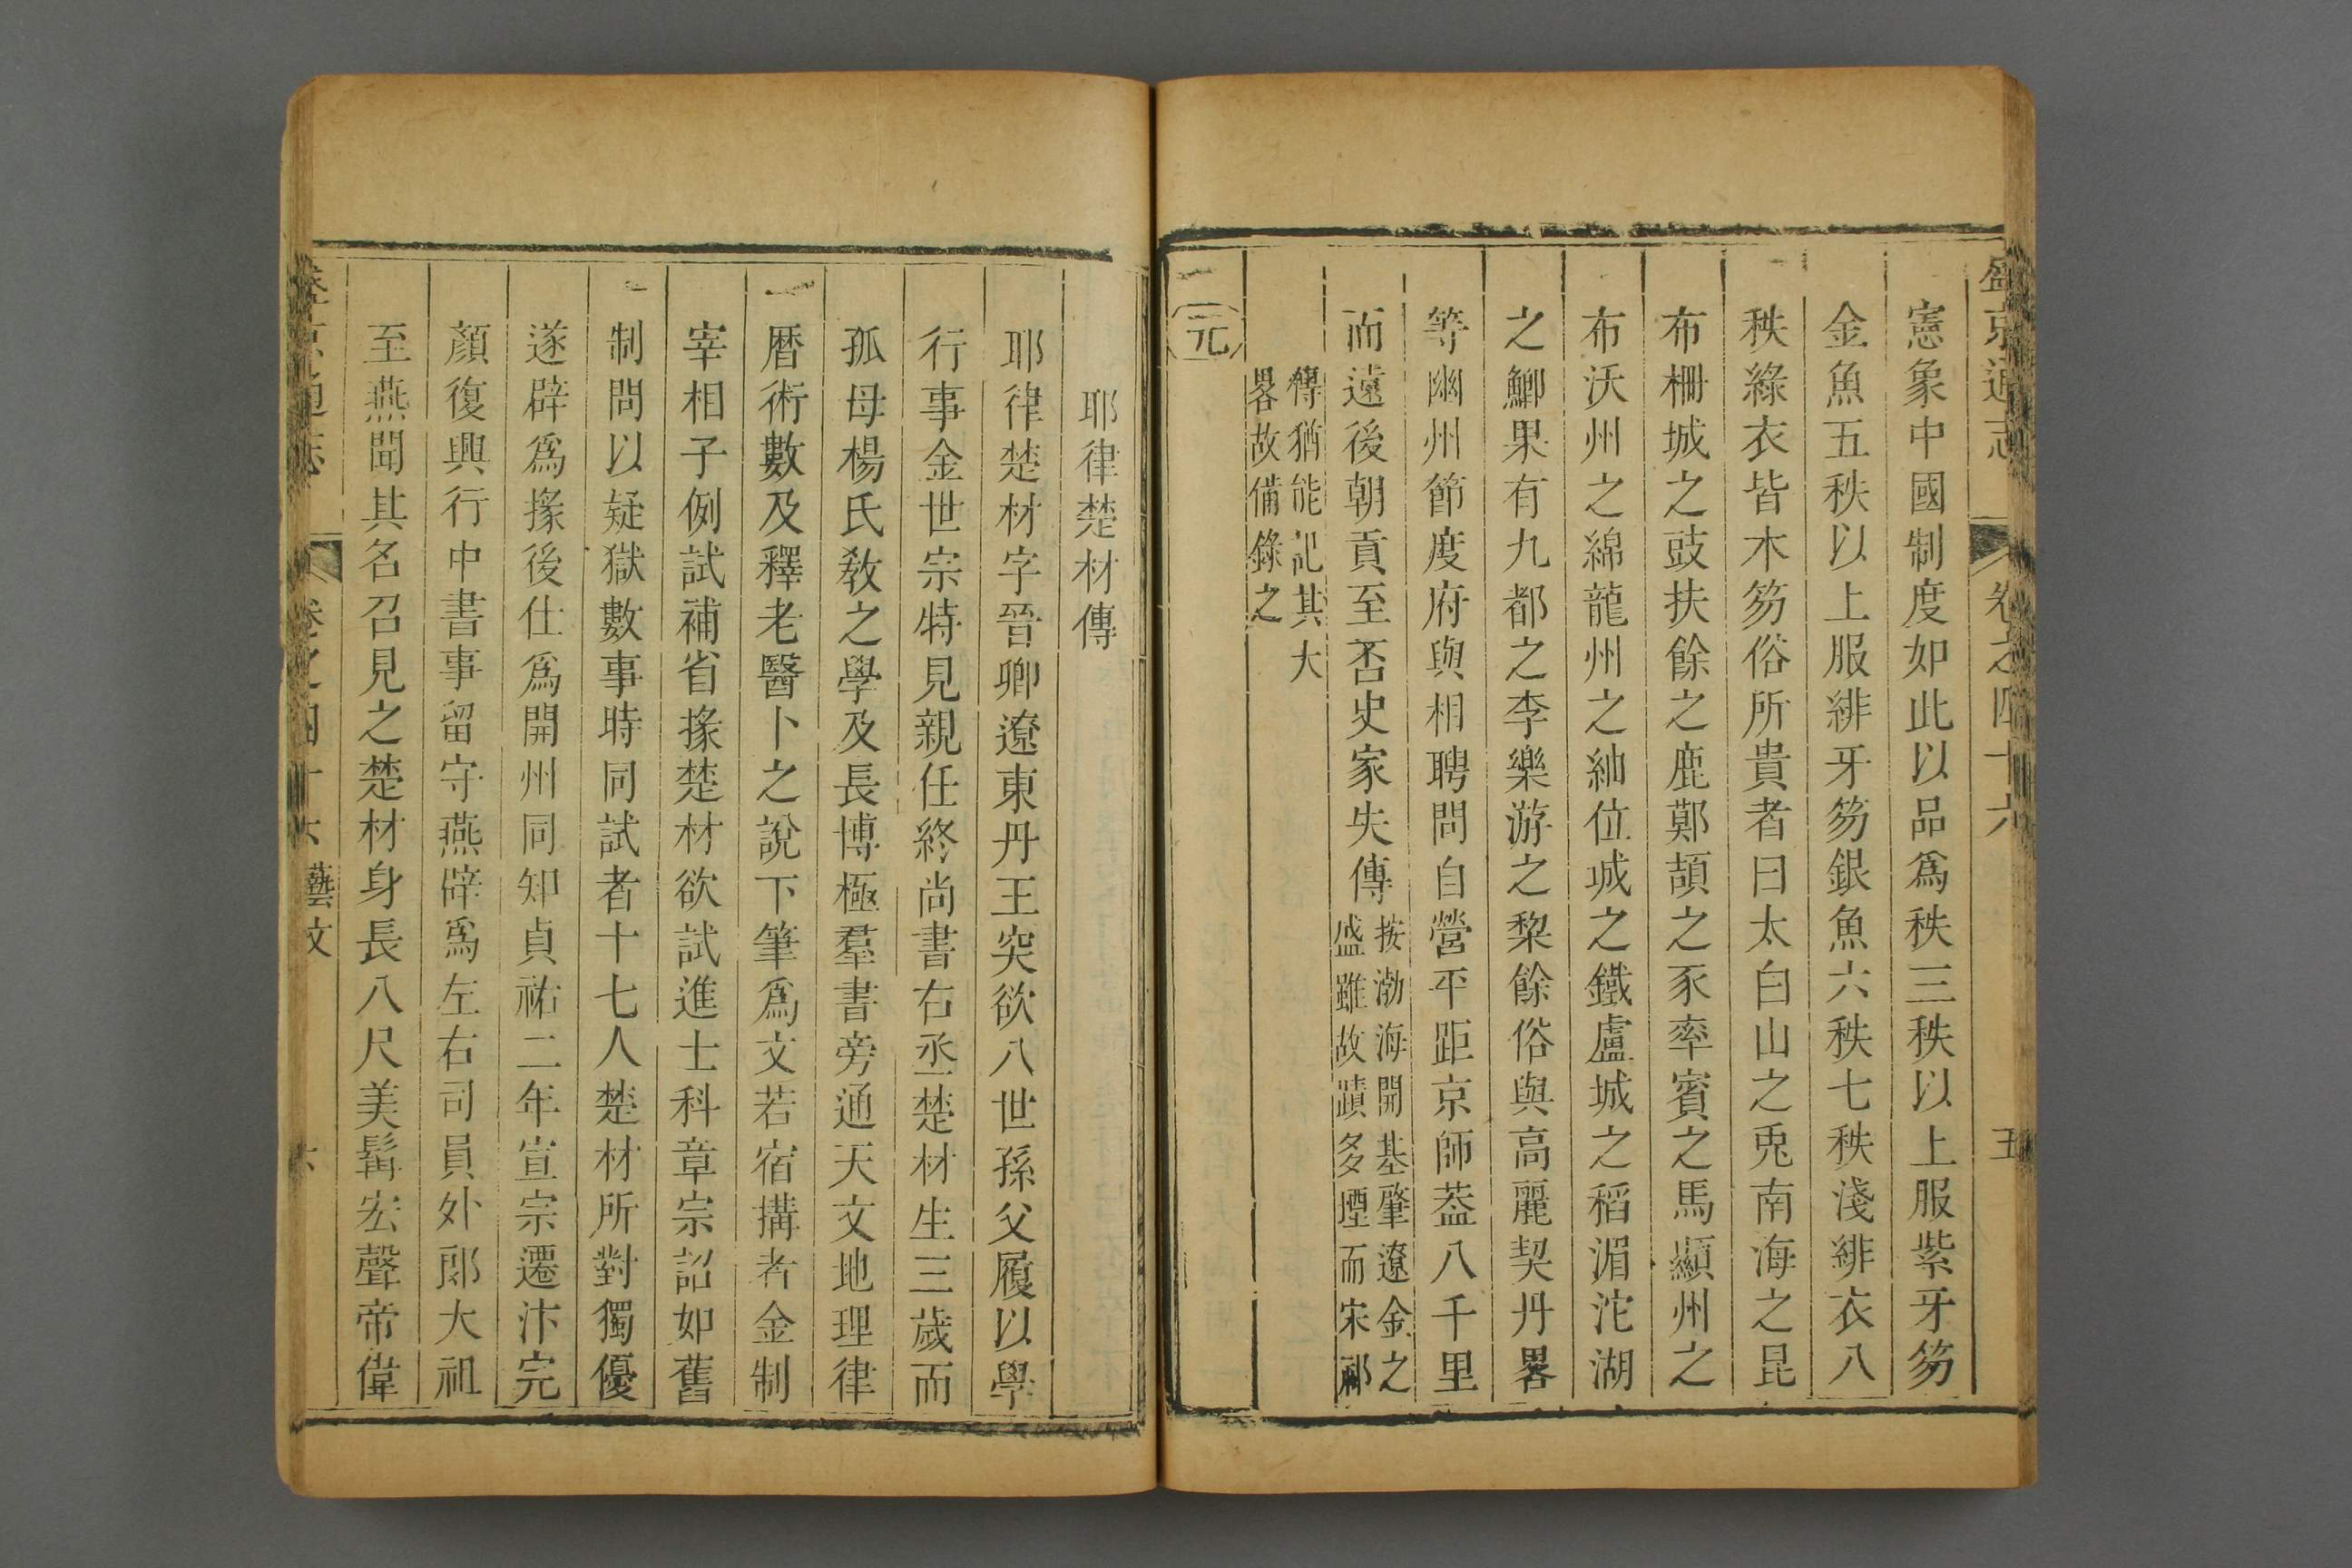 盛京通志 卷之四十六 五
憲象中國制度如此以品爲秩三秩以上服紫牙笏
金魚五秩以上服緋牙笏銀魚六秩七秩淺緋衣八
秩綠衣皆木笏俗所貴者曰太白山之兎南海之昆
布柵城之豉扶餘之鹿鄭頡之豕率賓之馬顯州之
布沃州之綿龍州之紬位城之鐵盧城之稻湄沱湖
之鯽果有九都之李樂游之棃餘俗與高麗契丹畧
等幽州節度府與相聘問自營平距京師葢八千里
而遠後朝貢至否史家失傳
按渤海開基肇遼金之
盛雖故蹟多堙而宋祁
傳猶能記其大
畧故備錄之
元
耶律楚材傳
耶律楚材字晉卿遼東丹王突欲八世孫父履以學
行事金世宗特見親任終尚書右丞楚材生三歲而
孤母楊氏敎之學及長博極羣書旁通天文地理律
曆術數及釋老醫卜之說下筆爲文若宿搆者金制
宰相子例試補省掾楚材欲試進士科章宗詔如舊
制問以疑獄數事時同試者十七人楚材所對獨優
遂辟爲掾後仕爲開州同知貞祐二年宣宗遷汴完
顏復興行中書事留守燕辟爲左右司員外郎大祖
至燕聞其名召見之楚材身長八尺美髯宏聲帝偉
盛京通志 卷之四十六 藝文 六